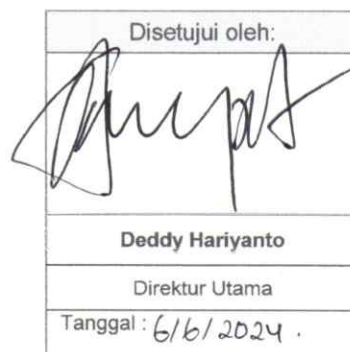 Disetujui oleh:
Deddy Hariyanto
Direktur Utama
Tanggal : 6/6/2024.